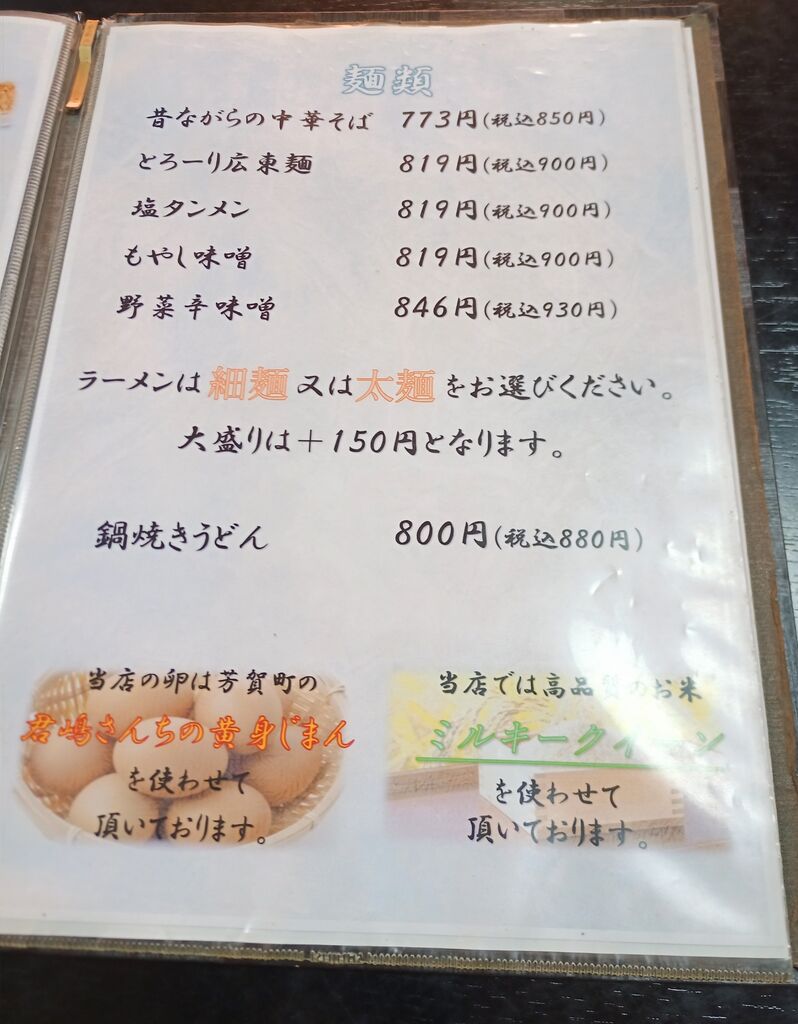 麺類
昔ながらの中華そば 773円(税込850円)
とろーり広東麺 819円(税込900円)
塩タンメン 819円(税込900円)
もやし味噌 819円(税込900円)
野菜辛味噌 846円(税込930円)
ラーメンは細麺又は太麺をお選びください。
大盛りは＋150円となります。
鍋焼きうどん 800円(税込880円)
当店の卵は芳賀町の
君嶋さんちの黄身じまん
を使わせて
頂いております。
当店では高品質のお米
ミルキークイーン
を使わせて
頂いております。